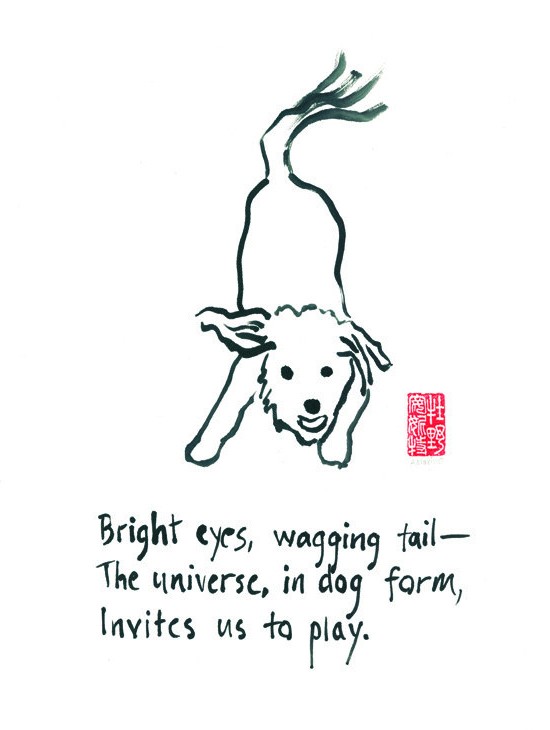 Bright eyes, wagging tail—
The universe, in dog form,
Invites us to play.